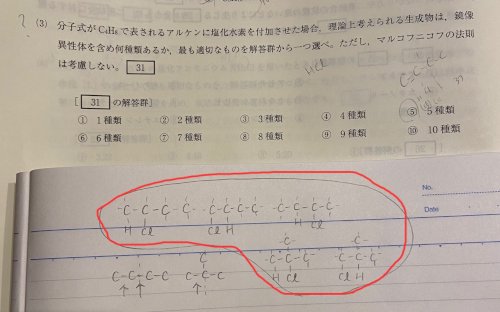 (3) 分子式がC₄H₈で表されるアルケンに塩化水素を付加させた場合,理論上考えられる生成物は,鏡像
異性体を含め何種類あるか,最も適切なものを解答群から一つ選べ。ただし,マルコフニコフの法則
は考慮しない。 31
HCl
C-C-C-C
[ 31 の解答群]
① 1種類 ② 2種類 ③ 3種類 ④ 4種類 ⑤ 5種類
⑥ 6種類 ⑦ 7種類 ⑧ 8種類 ⑨ 9種類 ⑩ 10種類
No.
Date
-C-C-C-C- -C-C-C-C- -C-C-C-C-
H Cl Cl H H Cl
C C
-C-C-C- -C-C-C-
H Cl Cl H
C-C-C-C C-C-C
↑ ↑ ↑